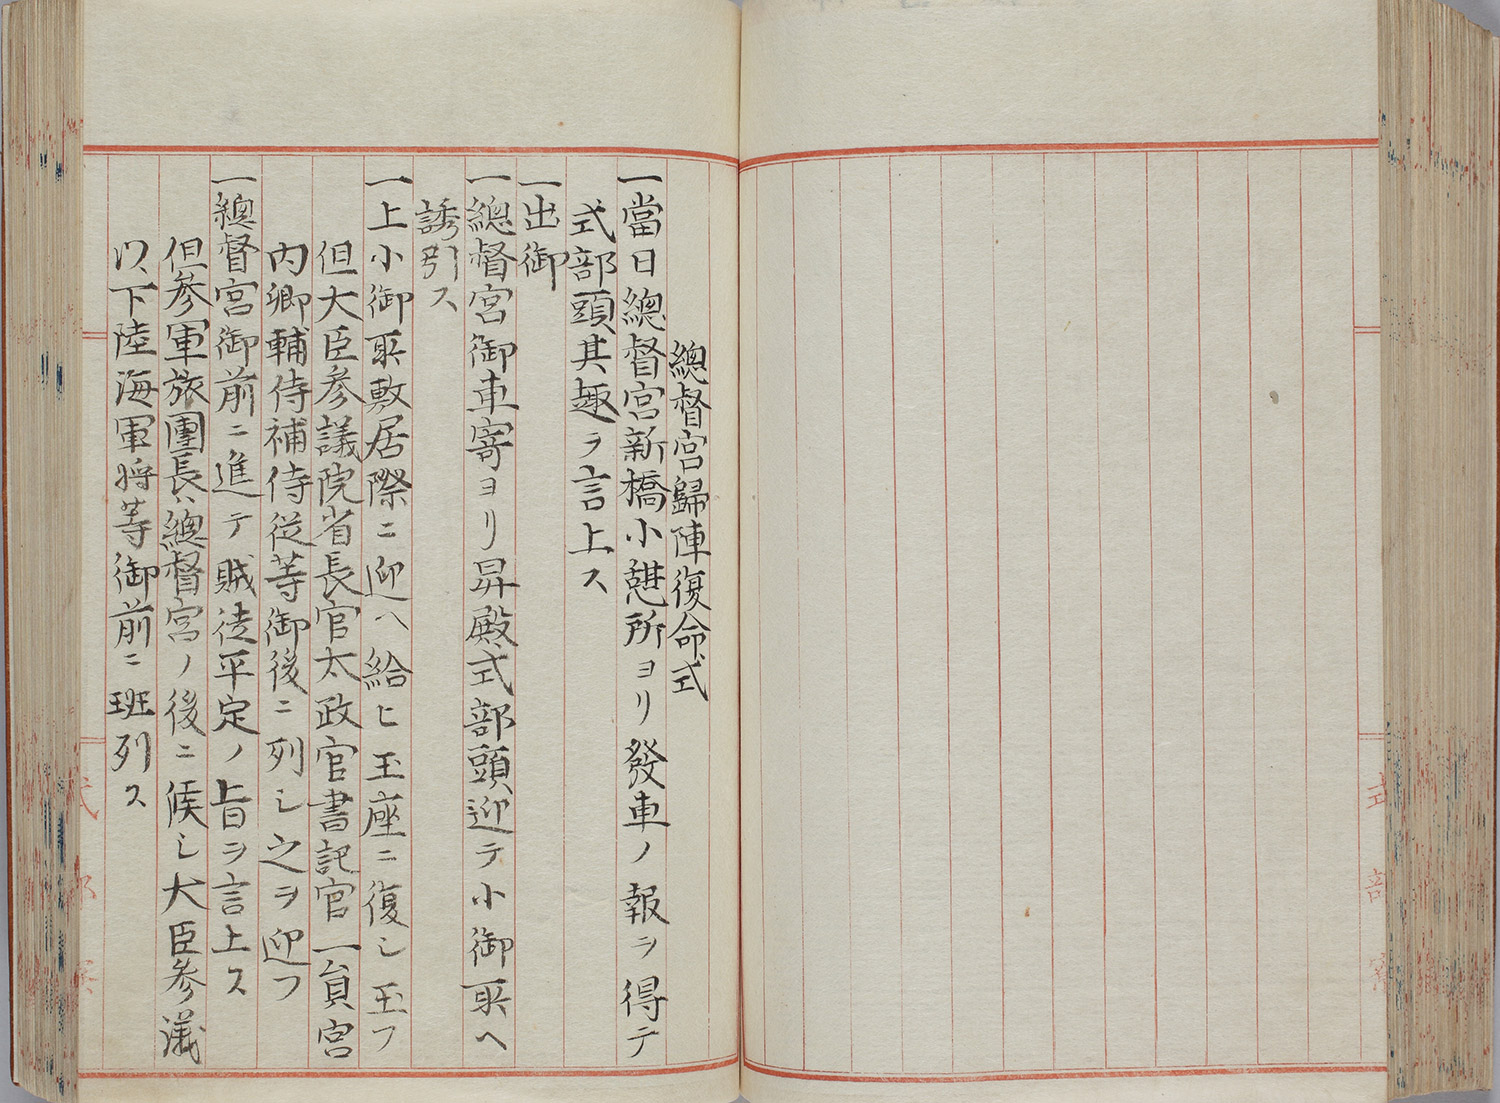 總督宮歸陣復命式
一當日總督宮新橋小憇所ヨリ發車ノ報ヲ得テ
式部頭其趣ヲ言上ス
一出御
一總督宮御車寄ヨリ昇殿式部頭迎テ小御所ヘ
誘引ス
一上小御所敷居際ニ迎ヘ給ヒ玉座ニ復シ玉フ
但大臣參議院省長官太政官書記官一員宮
内卿輔侍補侍從等御後ニ列シ之ヲ迎フ
一總督宮御前ニ進テ賊徒平定ノ旨ヲ言上ス
但參軍旅團長ハ總督宮ノ後ニ候シ大臣參議
以下陸海軍将等御前ニ班列ス
式部寮
式部寮